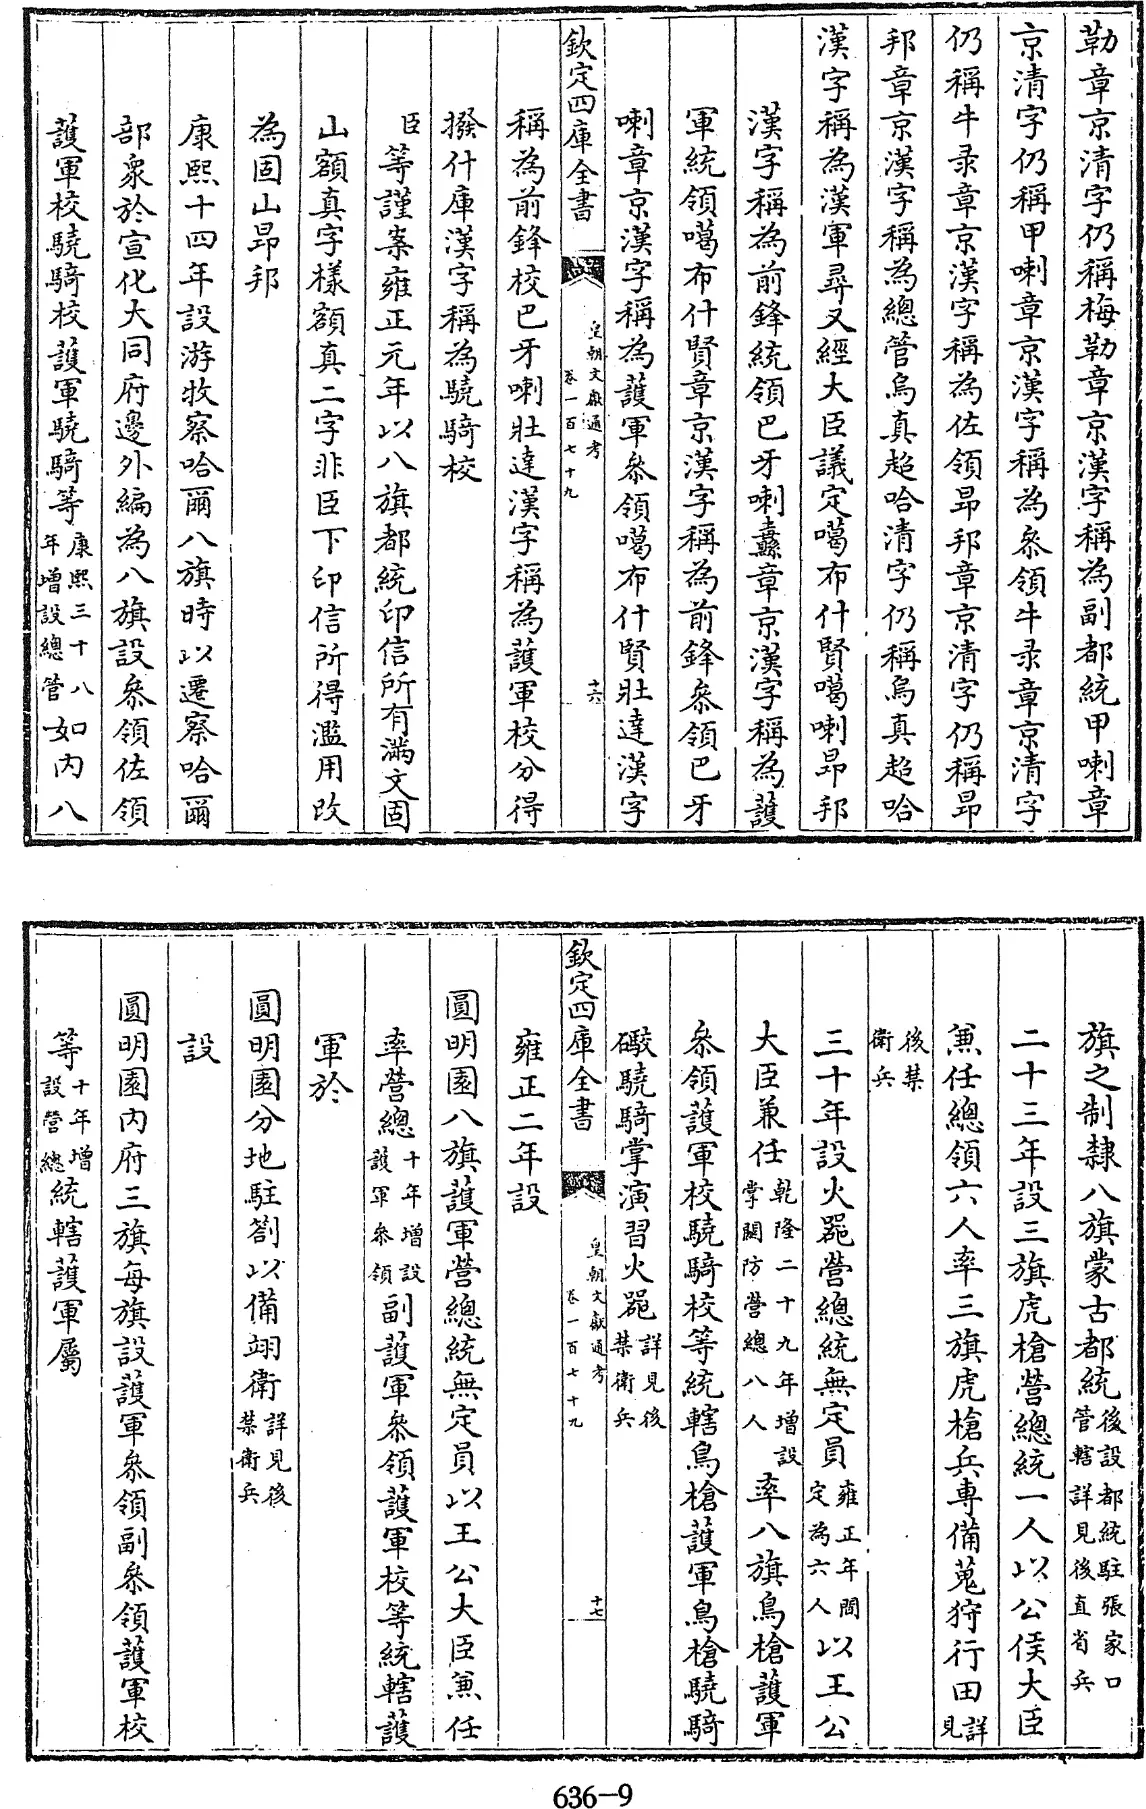 勒章京清字仍稱梅勒章京漢字稱為副都統甲喇章
京清字仍稱甲喇章京漢字稱為叅領牛录章京清字
仍稱牛录章京漢字稱為佐領昻邦章京清字仍稱昻
邦章京漢字稱為總管烏真超哈清字仍稱烏真超哈
漢字稱為漢軍尋又經大臣議定噶布什賢噶喇昻邦
漢字稱為前鋒統領巴牙喇纛章京漢字稱為護
軍統領噶布什賢章京漢字稱為前鋒叅領巴牙
喇章京漢字稱為護軍叅領噶布什賢壯達漢字
欽定四庫全書
皇朝文獻通考
卷一百七十九
十六
稱為前鋒校巴牙喇壯達漢字稱為護軍校分得
撥什庫漢字稱為驍騎校
臣等謹案雍正元年以八旗都統印信所有滿文固
山額真字樣額真二字非臣下印信所得濫用改
為固山昻邦
康熙十四年設游牧察哈爾八旗時以遷察哈爾
部衆於宣化大同府邊外編為八旗設叅領佐領
護軍校驍騎校護軍驍騎等康熙三十八年增設總管如內八
旗之制隸八旗蒙古都統後設都統駐張家口管轄詳見後直省兵
二十三年設三旗虎槍營總統一人以公侯大臣
兼任總領六人率三旗虎槍兵專備蒐狩行田詳見
後禁衛兵
三十年設火器營總統無定員雍正年間定為六人以王公
大臣兼任乾隆二十九年增設掌關防營總八人率八旗鳥槍護軍
叅領護軍校驍騎校等統轄鳥槍護軍鳥槍驍騎
礮驍騎掌演習火器詳見後禁衛兵
欽定四庫全書
皇朝文獻通考
卷一百七十九
十七
雍正二年設
圓明園八旗護軍營總統無定員以王公大臣兼任
率營總十年增設護軍叅領副護軍叅領護軍校等統轄護
軍於
圓明園分地駐劄以備翊衛詳見後禁衛兵
設
圓明園內府三旗每旗設護軍叅領副叅領護軍校
等十年增設營總統轄護軍屬
636-9